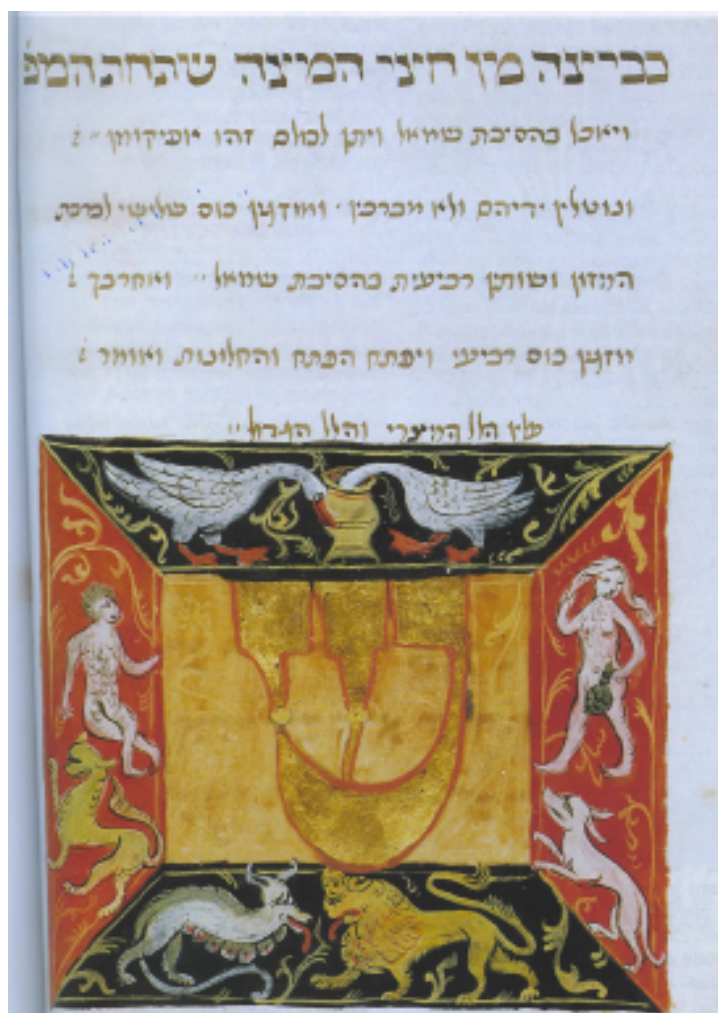 כביצה מן חיצי המיצה שתחת המפ
ויאכל בהסיבת שמאל ויתן לכולם זהו אפיקומן
ונוטלין ידיהם ולא מברכין ומוזגין כוס שלישי לברכת
המזון ושותין רביעית בהסיבת שמאל ואחר כך
יוזגין כוס רביעי ויפתח הפתח והחלונות ואומר
הלל המצרי והלל הגדול
ש